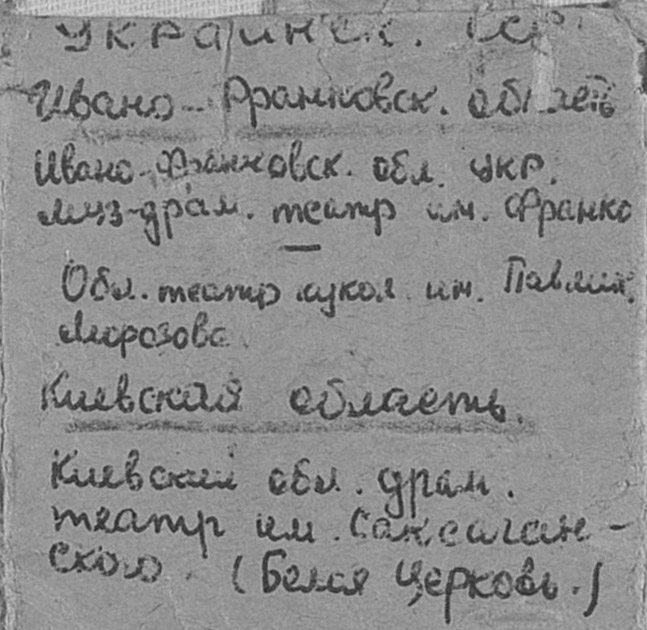 Украинск. ССР
Ивано-Франковск. область
Ивано-Франковск. обл. укр.
муз-драм. театр им. Франко
Обл. театр кукол им. Павлик.
Морозова
Киевская область.
Киевский обл. драм.
театр им. Саксаган-
ского. (Белая Церковь.)